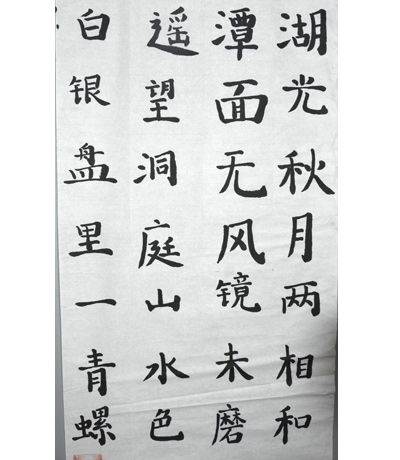 湖光秋月两相和
潭面无风镜未磨
遥望洞庭山水色
白银盘里一青螺